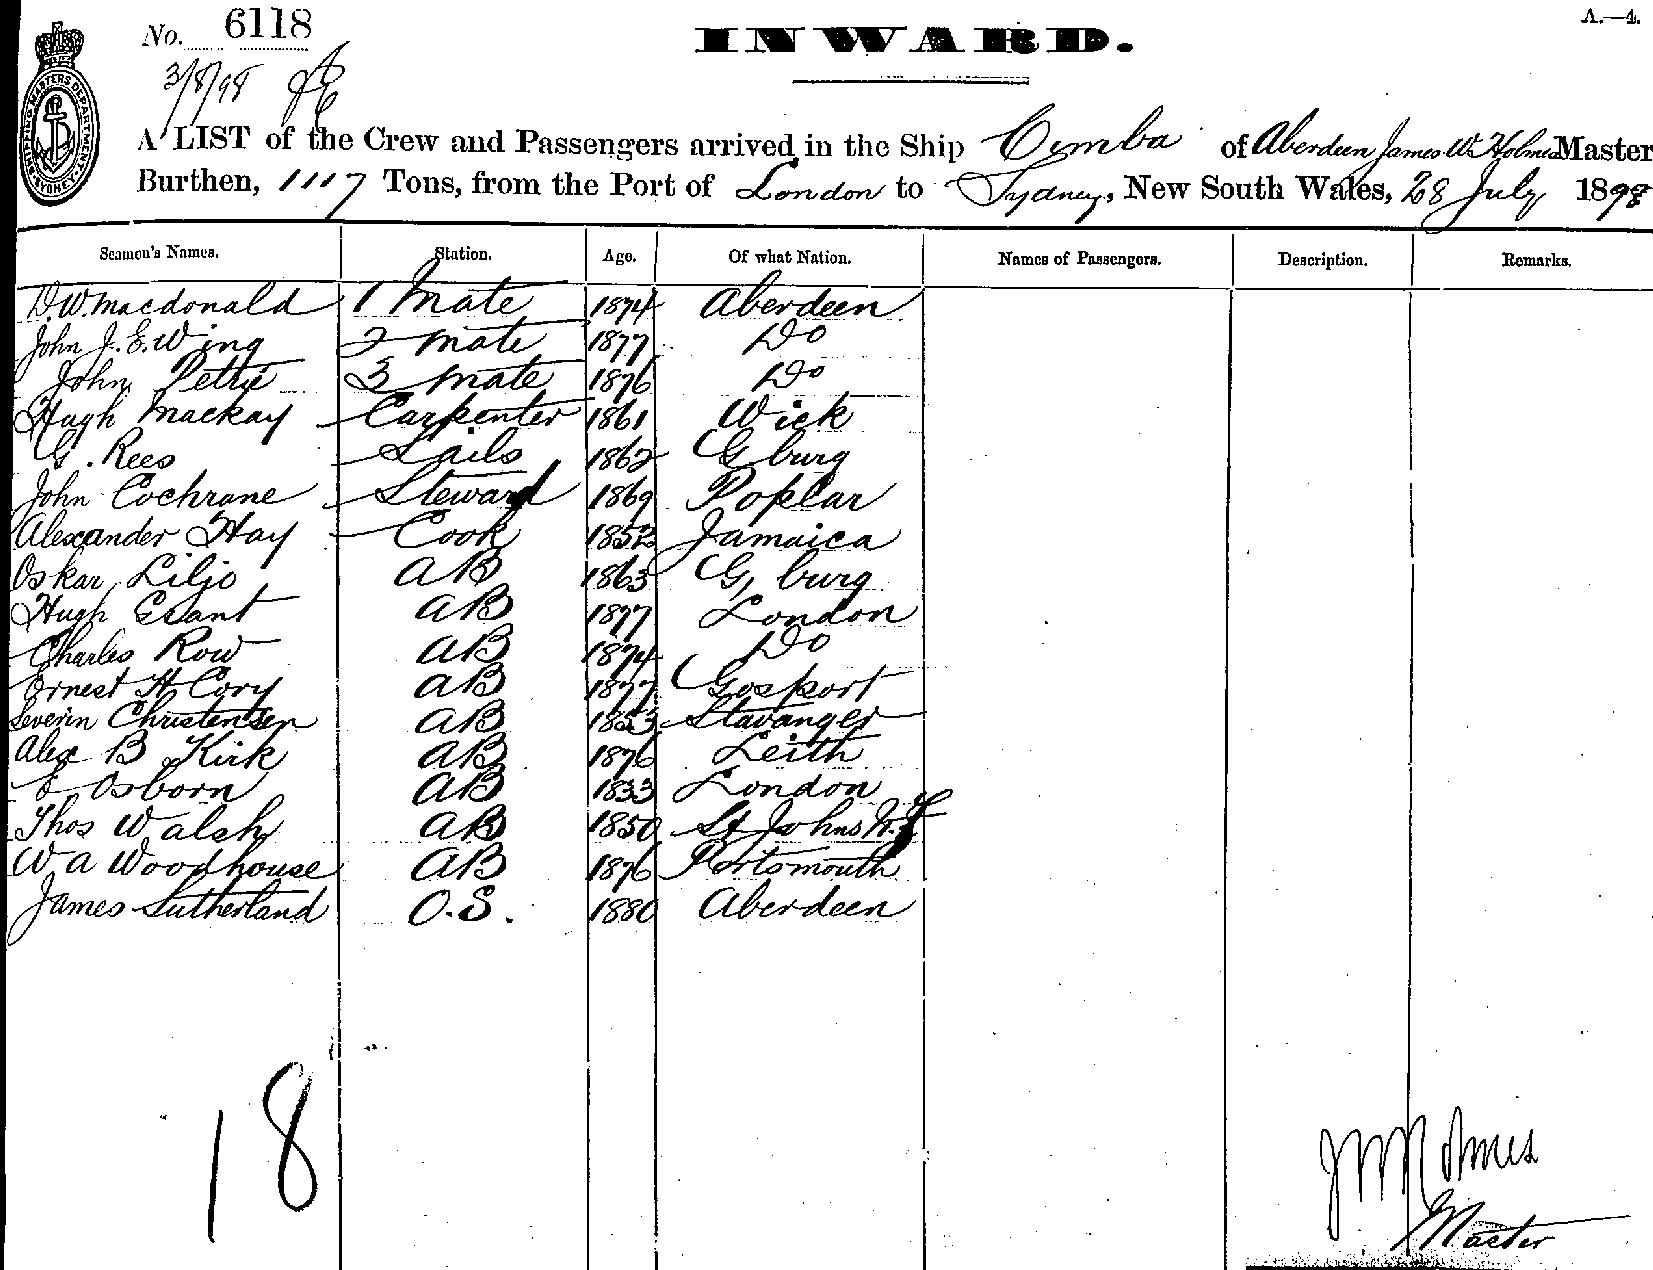 A.—4.
No. 6118
INWARD.
3/8/98
SHIPPING MASTERS DEPARTMENT SYDNEY
A LIST of the Crew and Passengers arrived in the Ship Cimba of Aberdeen James W. Holmes Master
Burthen, 1117 Tons, from the Port of London to Sydney, New South Wales, 28 July 1898
Seamen's Names. Station. Age. Of what Nation. Names of Passengers. Description. Remarks.
D.W. Macdonald 1 Mate 1874 Aberdeen
John J. E. Wing 2 Mate 1877 Do
John Petrie 3 Mate 1876 Do
Hugh Mackay Carpenter 1861 Wick
G. Rees Sails 1862 G burg
John Cochrane Steward 1869 Poplar
Alexander Hay Cook 1852 Jamaica
Oskar Liljo AB 1863 G, burg
Hugh Grant AB 1877 London
Charles Row AB 1874 Do
Ernest H Cory AB 1877 Gosport
Severin Christensen AB 1853 Stavanger
Alex B Kirk AB 1876 Leith
E Osborn AB 1833 London
Thos Walsh AB 1850 St Johns N.F
W A Woodhouse AB 1876 Portsmouth
James Sutherland O.S. 1880 Aberdeen
18
JW Holmes
Master